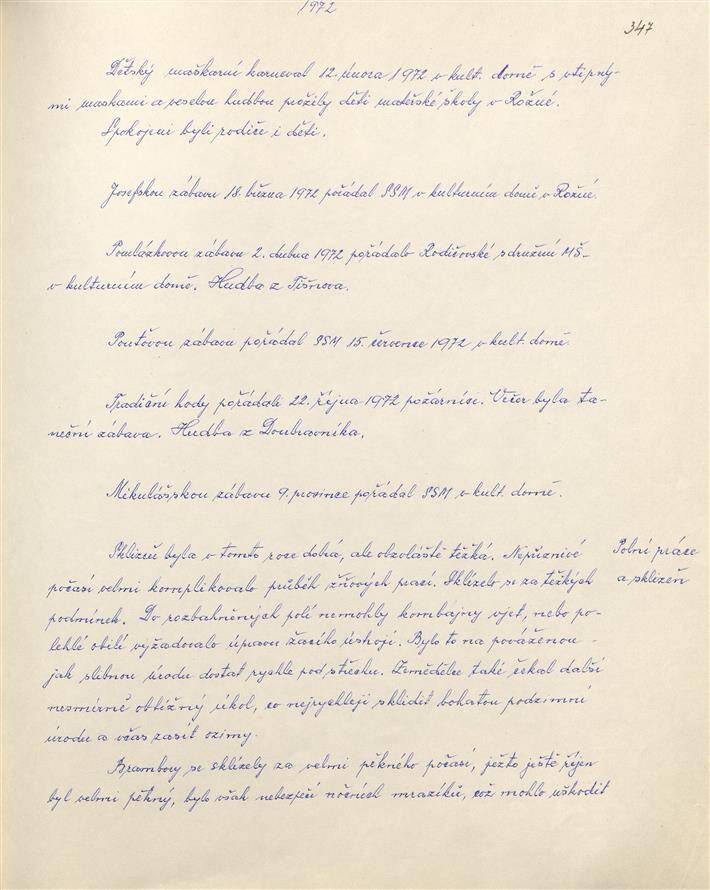 1972
347
Dětský maškarní karneval 12. února 1972 v kult. domě s vtipný-
mi maskami a veselou hudbou prožily děti mateřské školy v Rožné.
Spokojeni byli rodiče i děti.
Josefskou zábavu 18. března 1972 pořádal SSM v kulturním domě v Rožné.
Pomlázkovou zábavu 2. dubna 1972 pořádalo Rodičovské sdružení MŠ-
v kulturním domě. Hudba z Tišnova.
Pouťovou zábavu pořádal SSM 15. července 1972 v kult. domě.
Tradiční hody pořádali 22. října 1972 požárníci. Večer byla ta-
neční zábava. Hudba z Doubravníka.
Mikulášskou zábavu 9. prosince pořádal SSM v kult. domě.
Polní práce
a sklizeň
Sklizeň byla v tomto roce dobrá, ale obzvláště těžká. Nepříznivé
počasí velmi komplikovalo průběh žňových prací. Sklízelo se za těžkých
podmínek. Do rozbahněných polí nemohly kombajny vjet, nebo po-
lehlé obilí vyžadovalo úpravu žacího ústrojí. Bylo to na pováženou -
jak slibnou úrodu dostat rychle pod střechu. Zemědělce také čekal další
nesmírně obtížný úkol, co nejrychleji sklidit bohatou podzimní
úrodu a včas zasít ozimy.
Brambory se sklízely za velmi pěkného počasí, ježto ještě říjen
byl velmi pěkný, bylo však nebezpečí nočních mrazíků, což mohlo uškodit